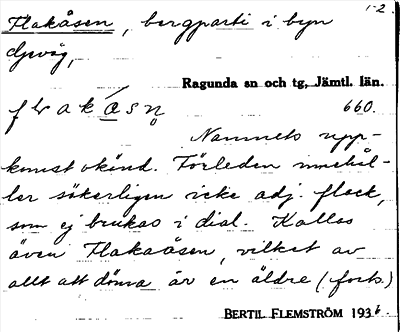 1-2.
Flakåsen, bergparti i byn
Djuvåg,
Ragunda sn och tg, Jämtl. län.
660.
Namnets upp-
komst okänd. Förleden innehål-
ler säkerligen icke adj. flack,
som ej brukas i dial. Kallas
även Flakaåsen, vilket av
allt att döma är en äldre (forts.)
BERTIL FLEMSTRÖM 1936.